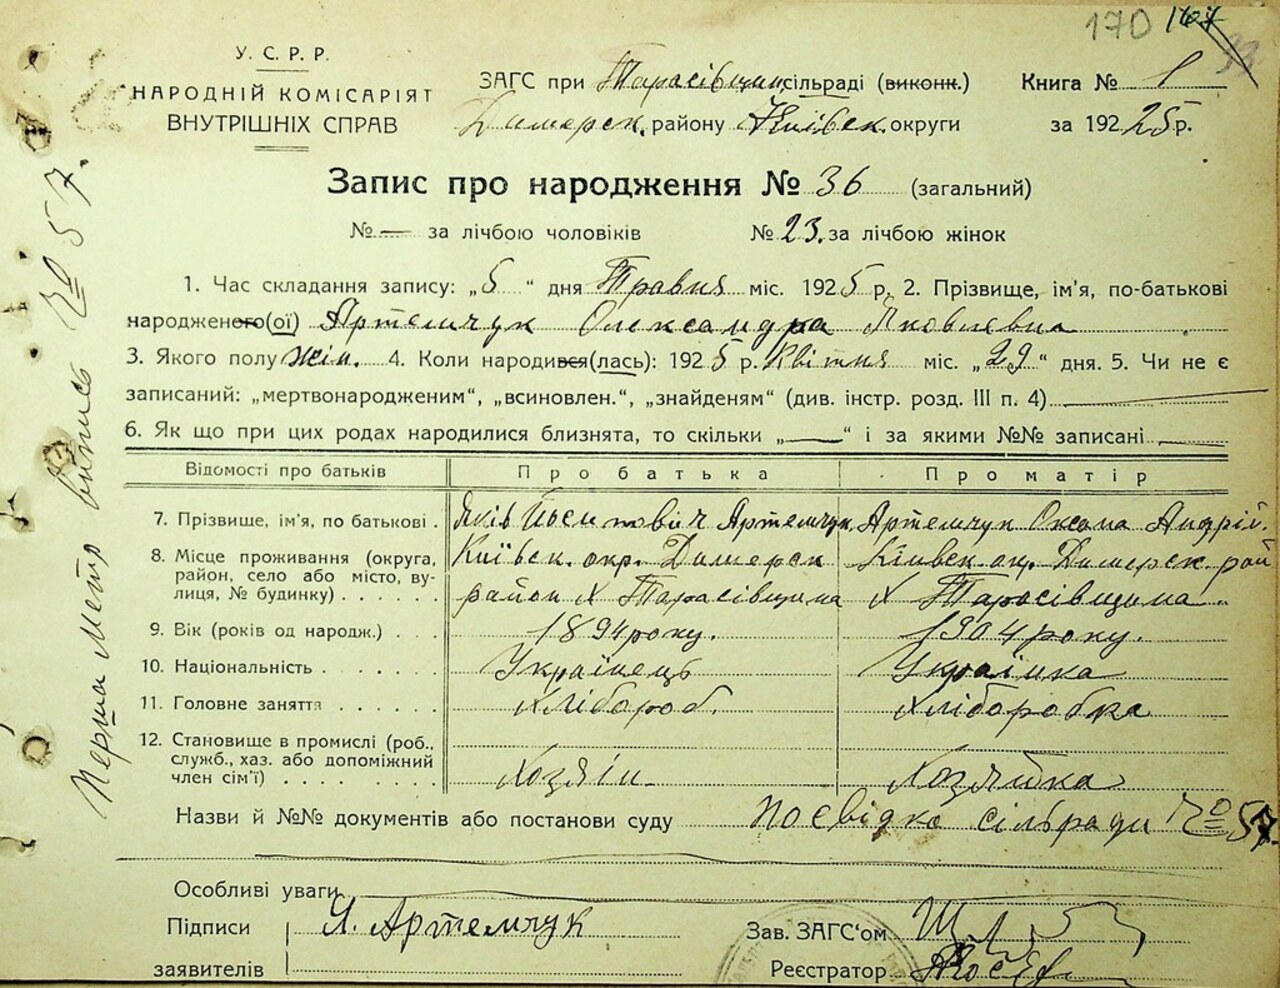 170 167
У. С. Р. Р.
НАРОДНІЙ КОМІСАРІЯТ
ВНУТРІШНІХ СПРАВ
ЗАГС при Тарасівщин. сільраді (виконк.) Книга № 1
Димерск. району Київск. округи за 1925 р.
Запис про народження № 36 (загальний)
№ — за лічбою чоловіків № 23. за лічбою жінок
1. Час складання запису: „5“ дня Травня міс. 1925 р. 2. Прізвище, ім'я, по-батькові
народженого(ої) Артемчук Олександра Яковлевна
3. Якого полу жін. 4. Коли народився(лась): 1925 р. Квітня міс. „29“ дня. 5. Чи не є
записаний: „мертвонародженим“, „всиновлен.“, „знайденям“ (див. інстр. розд. III п. 4)
6. Як що при цих родах народилися близнята, то скільки „—“ і за якими №№ записані
Відомості про батьків Про батька Про матір
7. Прізвище, ім'я, по батькові . Яків Йосипович Артемчук. Артемчук Оксана Андрій.
8. Місце проживання (округа, район, село або місто, вулиця, № будинку) . . . . . Київск. окр. Димерск Київск. окр. Димерск. рай
район Х Тарасівщина Х Тарасівщина.
9. Вік (років од народж.) . . . 1894 року. 1904 року.
10. Національність . . . . . Українець Українка
11. Головне заняття . . . . . . Хлібороб. Хліборобка
12. Становище в промислі (роб., служб., хаз. або допоміжний член сім'ї) . . . . . Хозяін. Хозяйка
Назви й №№ документів або постанови суду Посвідка сільради № 57.
Особливі уваги
Підписи Я. Артемчук Зав. ЗАГС'ом
заявителів Реєстратор
Перша Метр Випись № 57.